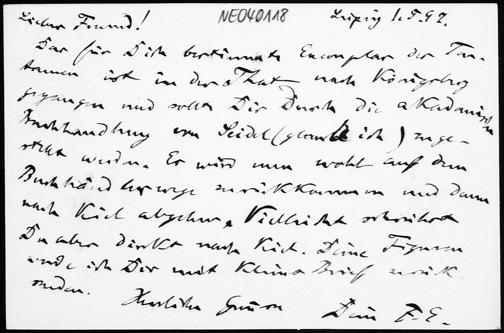 NE040118
Lieber Freund! Leipzig 1.5.92.
Das für Dich bestimmte Exemplar der
ist in der That nach Königsberg
gegangen und sollte Dir durch die akademische
Buchhandlung von Seidel (glaube ich) zuge-
schickt werden. Es wird nun wohl auf dem
Buchhändlerwege zurückkommen und dann
nach Kiel abgehen. Vielleicht schreibst
Du aber direkt nach Kiel. Deine Figuren
werde ich Dir mit Brief zurück
senden.
Herzliche Grüsse Dein F. E.